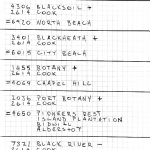 4306 BLACKSOIL +
2614 COOK
=6920 NORTH BEACH
3401 BLACKHEATH +
2614 COOK
=6015 CITY BEACH
1455 BOTANY +
2614 COOK
=4069 CHAPEL HILL
2036 PORT BOTANY +
2614 COOK
=4650 PIONEERS REST
ISLAND PLANTATION
BIDWILL
ALDERSHOT
7321 BLACK RIVER -
2614 COOK